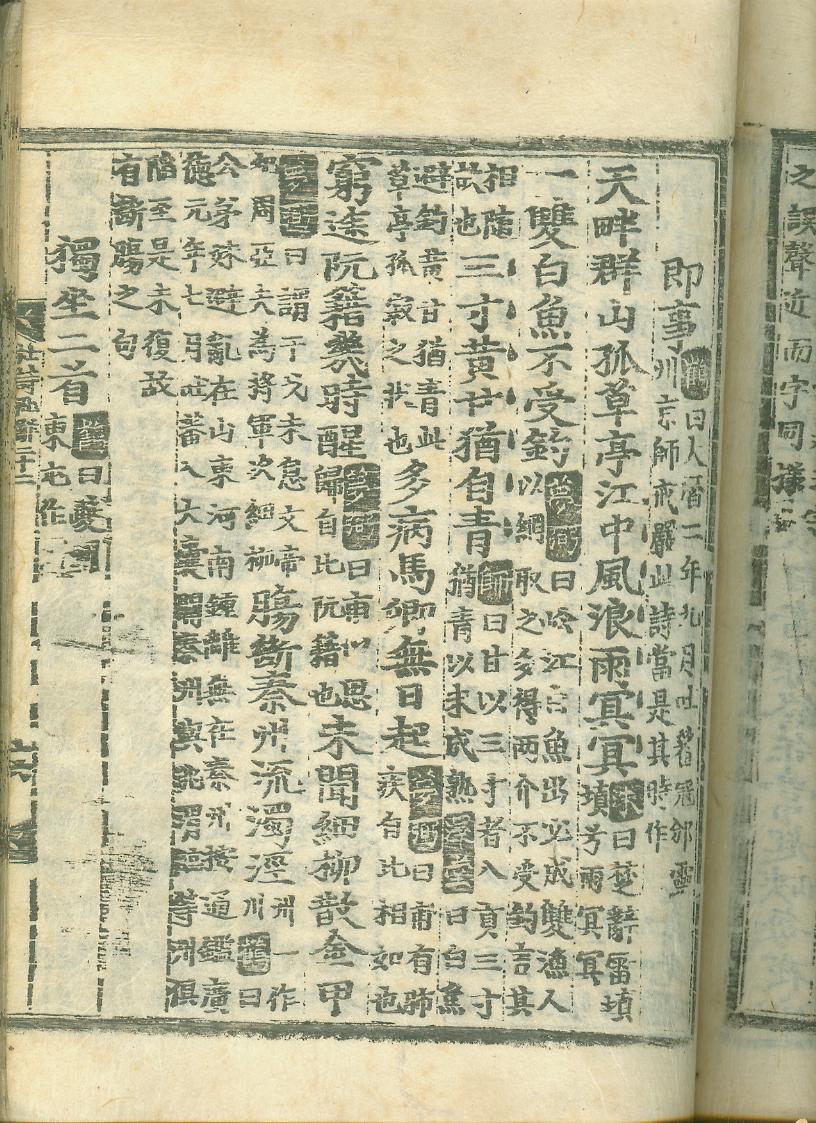 之誤聲近而字同據
即事鶴曰大曆二年九月吐蕃冠邠靈
州京師戒嚴此詩當是其時作
天畔群山孤草亭江中風浪雨冥冥洙曰楚辭雷塡
塡兮雨冥冥
一雙白魚不受釣夢弼曰峽江白魚出必成雙漁人
以網取之多得兩介不受釣言其
相隨
故也三寸黃甘猶自青師曰甘以三寸者入貢三寸
猶青以未成熟夢弼曰白魚
避釣黃甘猶青此
草亭孤寂之狀也多病馬卿無日起夢弼曰甫有肺
疾自比相如也
窮途阮籍幾時醒夢弼曰甫以思
歸自比阮籍也未聞細柳散金甲
夢弼曰謂干戈未息文帝
如周亞夫為將軍次細柳膓斷秦州流濁涇州一作
川鶴曰
公弟妹避亂在山東河南鍾離無在秦州按通鑑廣
德元年七月吐蕃入大震關秦州與渭等州俱
陷至是未復故
有斷膓之句
獨坐二首鶴曰夔州
東屯作
杜詩二十二